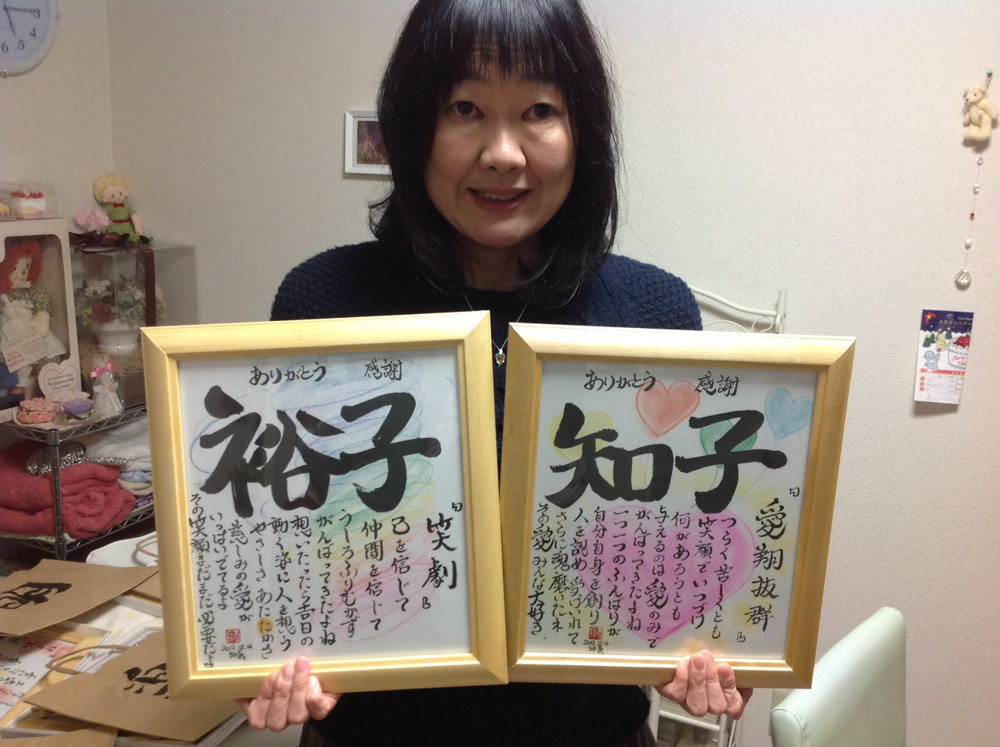 ありがとう 感謝
裕子
『笑劇』
己を信じて
仲間を信じて
うしろふりむかず
がんばってきたよね
想いたったら吉日の
動く姿に人を想う
やさしさ あたたかさ
慈しみの愛が
いっぱいでてるよ
その笑顔まだまだ必要だよ
2013.12.14
ありがとう 感謝
知子
『愛翔抜群』
つらく苦しくとも
笑顔でいつづけ
何があろうとも
与えるのは愛のみで
がんばってきたよね
一つ一つのふんばりが
自分自身を創り
人を認め受けいれて
さらに魂磨いたネ
その愛みんな大好き
2013.12.14
3
4
5
6